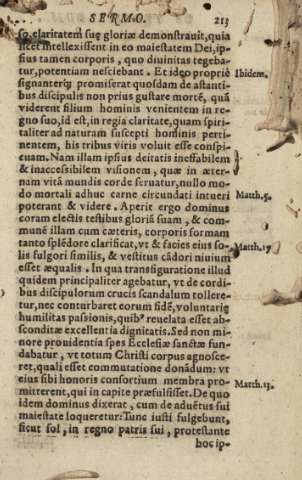 SERMO. 213
so, claritatem suę gloriæ demonstrauit, quia
licet intellexissent in eo maiestatem Dei, ip-
sius tamen corporis, quo diuinitas tegeba-
tur, potentiam nesciebant. Et ideo propriè
Ibidem.
signanterq; promiserat quosdam de astanti-
bus discipulis non prius gustare mortẽ, quã
viderent filium hominis venientem in re-
gno suo, id est, in regia claritate, quam spiri-
taliter ad naturam suscepti hominis perti-
nentem, his tribus viris voluit esse conspi-
cuam. Nam illam ipsius deitatis ineffabilem
& inaccessibilem visionem, quæ in æter-
nam vitã mundis corde seruatur, nullo mo-
do mortali adhuc carne circundati intueri
Matth. 5.
poterant & videre. Aperit ergo dominus
coram electis testibus gloriã suam, & com-
munẽ illam cum cæteris, corporis formam
tanto splẽdore clarificat, vt & facies eius so-
Matth. 17
lis fulgori similis, & vestitus cãdori niuium
esset æqualis. In qua transfiguratione illud
quidem principaliter agebatur, vt de cordi-
bus discipulorum crucis scandalum tollere-
tur, nec conturbaret eorum fidẽ, voluntarię
humilitas passionis, quibꝰ reuelata esset ab-
sconditæ excellentia dignitatis. Sed non mi-
nore prouidentia spes Ecclesiæ sanctæ fun-
dabatur, vt totum Christi corpus agnosce-
ret, quali esset commutatione donãdum: vt
eius sibi honoris consortium membra pro-
Matth. 13.
mitterent, qui in capite præfulsisset. De quo
idem dominus dixerat, cum de aduẽtus sui
maiestate loqueretur: Tunc iusti fulgebunt,
sicut sol, in regno patris sui, protestante
hoc ip-